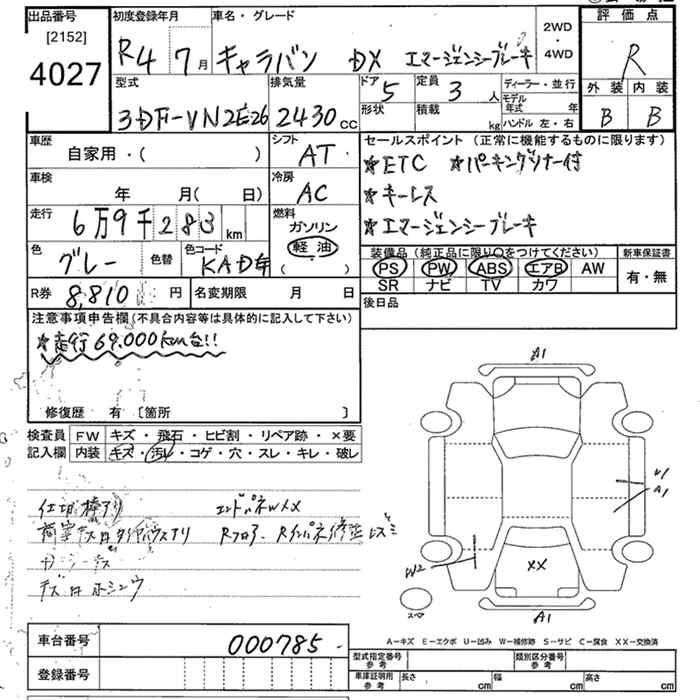 出品番号
[2152]
4027
初度登録年月
R4 7月
車名・グレード
キャラバン DX エマージェンシーブレーキ
2WD
・
4WD
評価点
R
外装 内装
B B
型式
3DF-VN2E26
排気量
2430cc
ドア 5
形状
定員 3人
積載 kg
ディーラー・並行
モデル年式 年
ハンドル 左・右
車歴
自家用・( )
シフト
AT
車検
年 月( 日)
冷房
AC
走行
6万9千283km
燃料
ガソリン
軽油
( )
色
グレー
色替
色コード
KAD
R券 8,810円
名変期限 月 日
セールスポイント(正常に機能するものに限ります)
★ETC ★パーキングソナー付
★キーレス
★エマージェンシーブレーキ
装備品(純正品に限り○をつけてください)
PS PW ABS エアB AW
SR ナビ TV カワ
新車保証書
有・無
後日品
注意事項申告欄(不具合内容等は具体的に記入して下さい)
★走行69.000km台!!
修復歴 有 [箇所 ]
検査員記入欄
FW キズ・飛石・ヒビ割・リペア跡・×要
内装 キズ・汚レ・コゲ・穴・スレ・キレ・破レ
エンドパネWXX
Rフロア、Rインパネ修
A1
U1
A1
W2
XX
スペア
A1
A-キズ E-エクボ U-凹み W-補修跡 S-サビ C-腐食 XX-交換済
車台番号 000785
登録番号
型式指定番号 参考
類別区分番号 参考
車庫証明用 参考
長さ cm 幅 cm 高さ cm